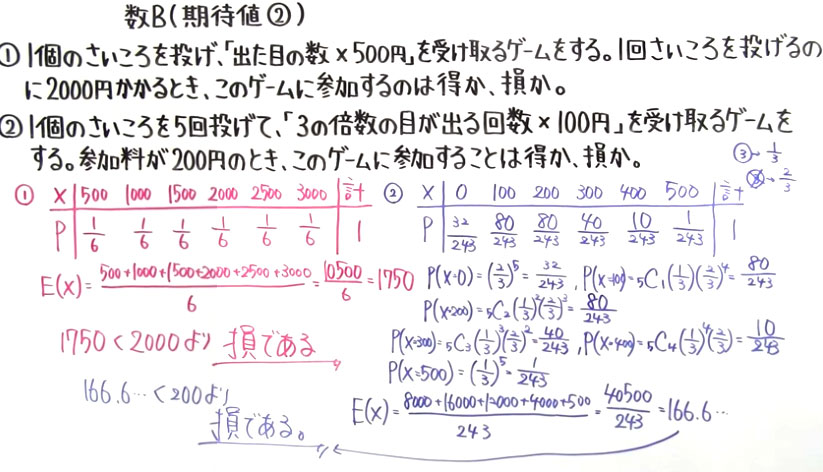 数B(期待値②)
① 1個のさいころを投げ、「出た目の数×500円」を受け取るゲームをする。1回さいころを投げるの
に2000円かかるとき、このゲームに参加するのは得か、損か。
② 1個のさいころを5回投げて、「3の倍数の目が出る回数×100円」を受け取るゲームを
する。参加料が200円のとき、このゲームに参加することは得か、損か。
③→ 1/3
→ 2/3
① X 500 1000 1500 2000 2500 3000 計
P 1/6 1/6 1/6 1/6 1/6 1/6 1
E(X)= (500+1000+1500+2000+2500+3000)/6 = 10500/6 = 1750
1750<2000より 損である
② X 0 100 200 300 400 500 計
P 32/243 80/243 80/243 40/243 10/243 1/243 1
P(X=0)=(2/3)^5= 32/243 , P(X=100)=5C1(1/3)(2/3)^4= 80/243
P(X=200)=5C2(1/3)^2(2/3)^3= 80/243
P(X=300)=5C3(1/3)^3(2/3)^2= 40/243 , P(X=400)=5C4(1/3)^4(2/3)= 10/243
P(X=500)=(1/3)^5= 1/243
E(X)= (8000+16000+12000+4000+500)/243 = 40500/243 =166.6…
166.6…<200より
損である。